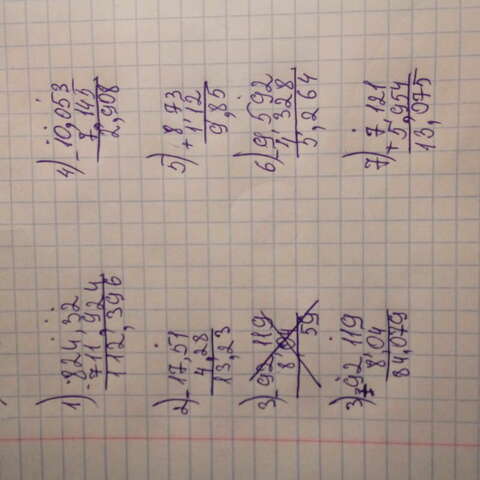 1) 824,32
- 711,924
112,396
2) - 17,51
4,28
13,23
3) - 92 119
8,04
59
3) - 92,119
8,04
84,079
4) - 10,053
7,145
2,908
5) + 8,73
1,12
9,85
6) - 9,592
4,328
5,264
7) + 7,121
5,954
13,075